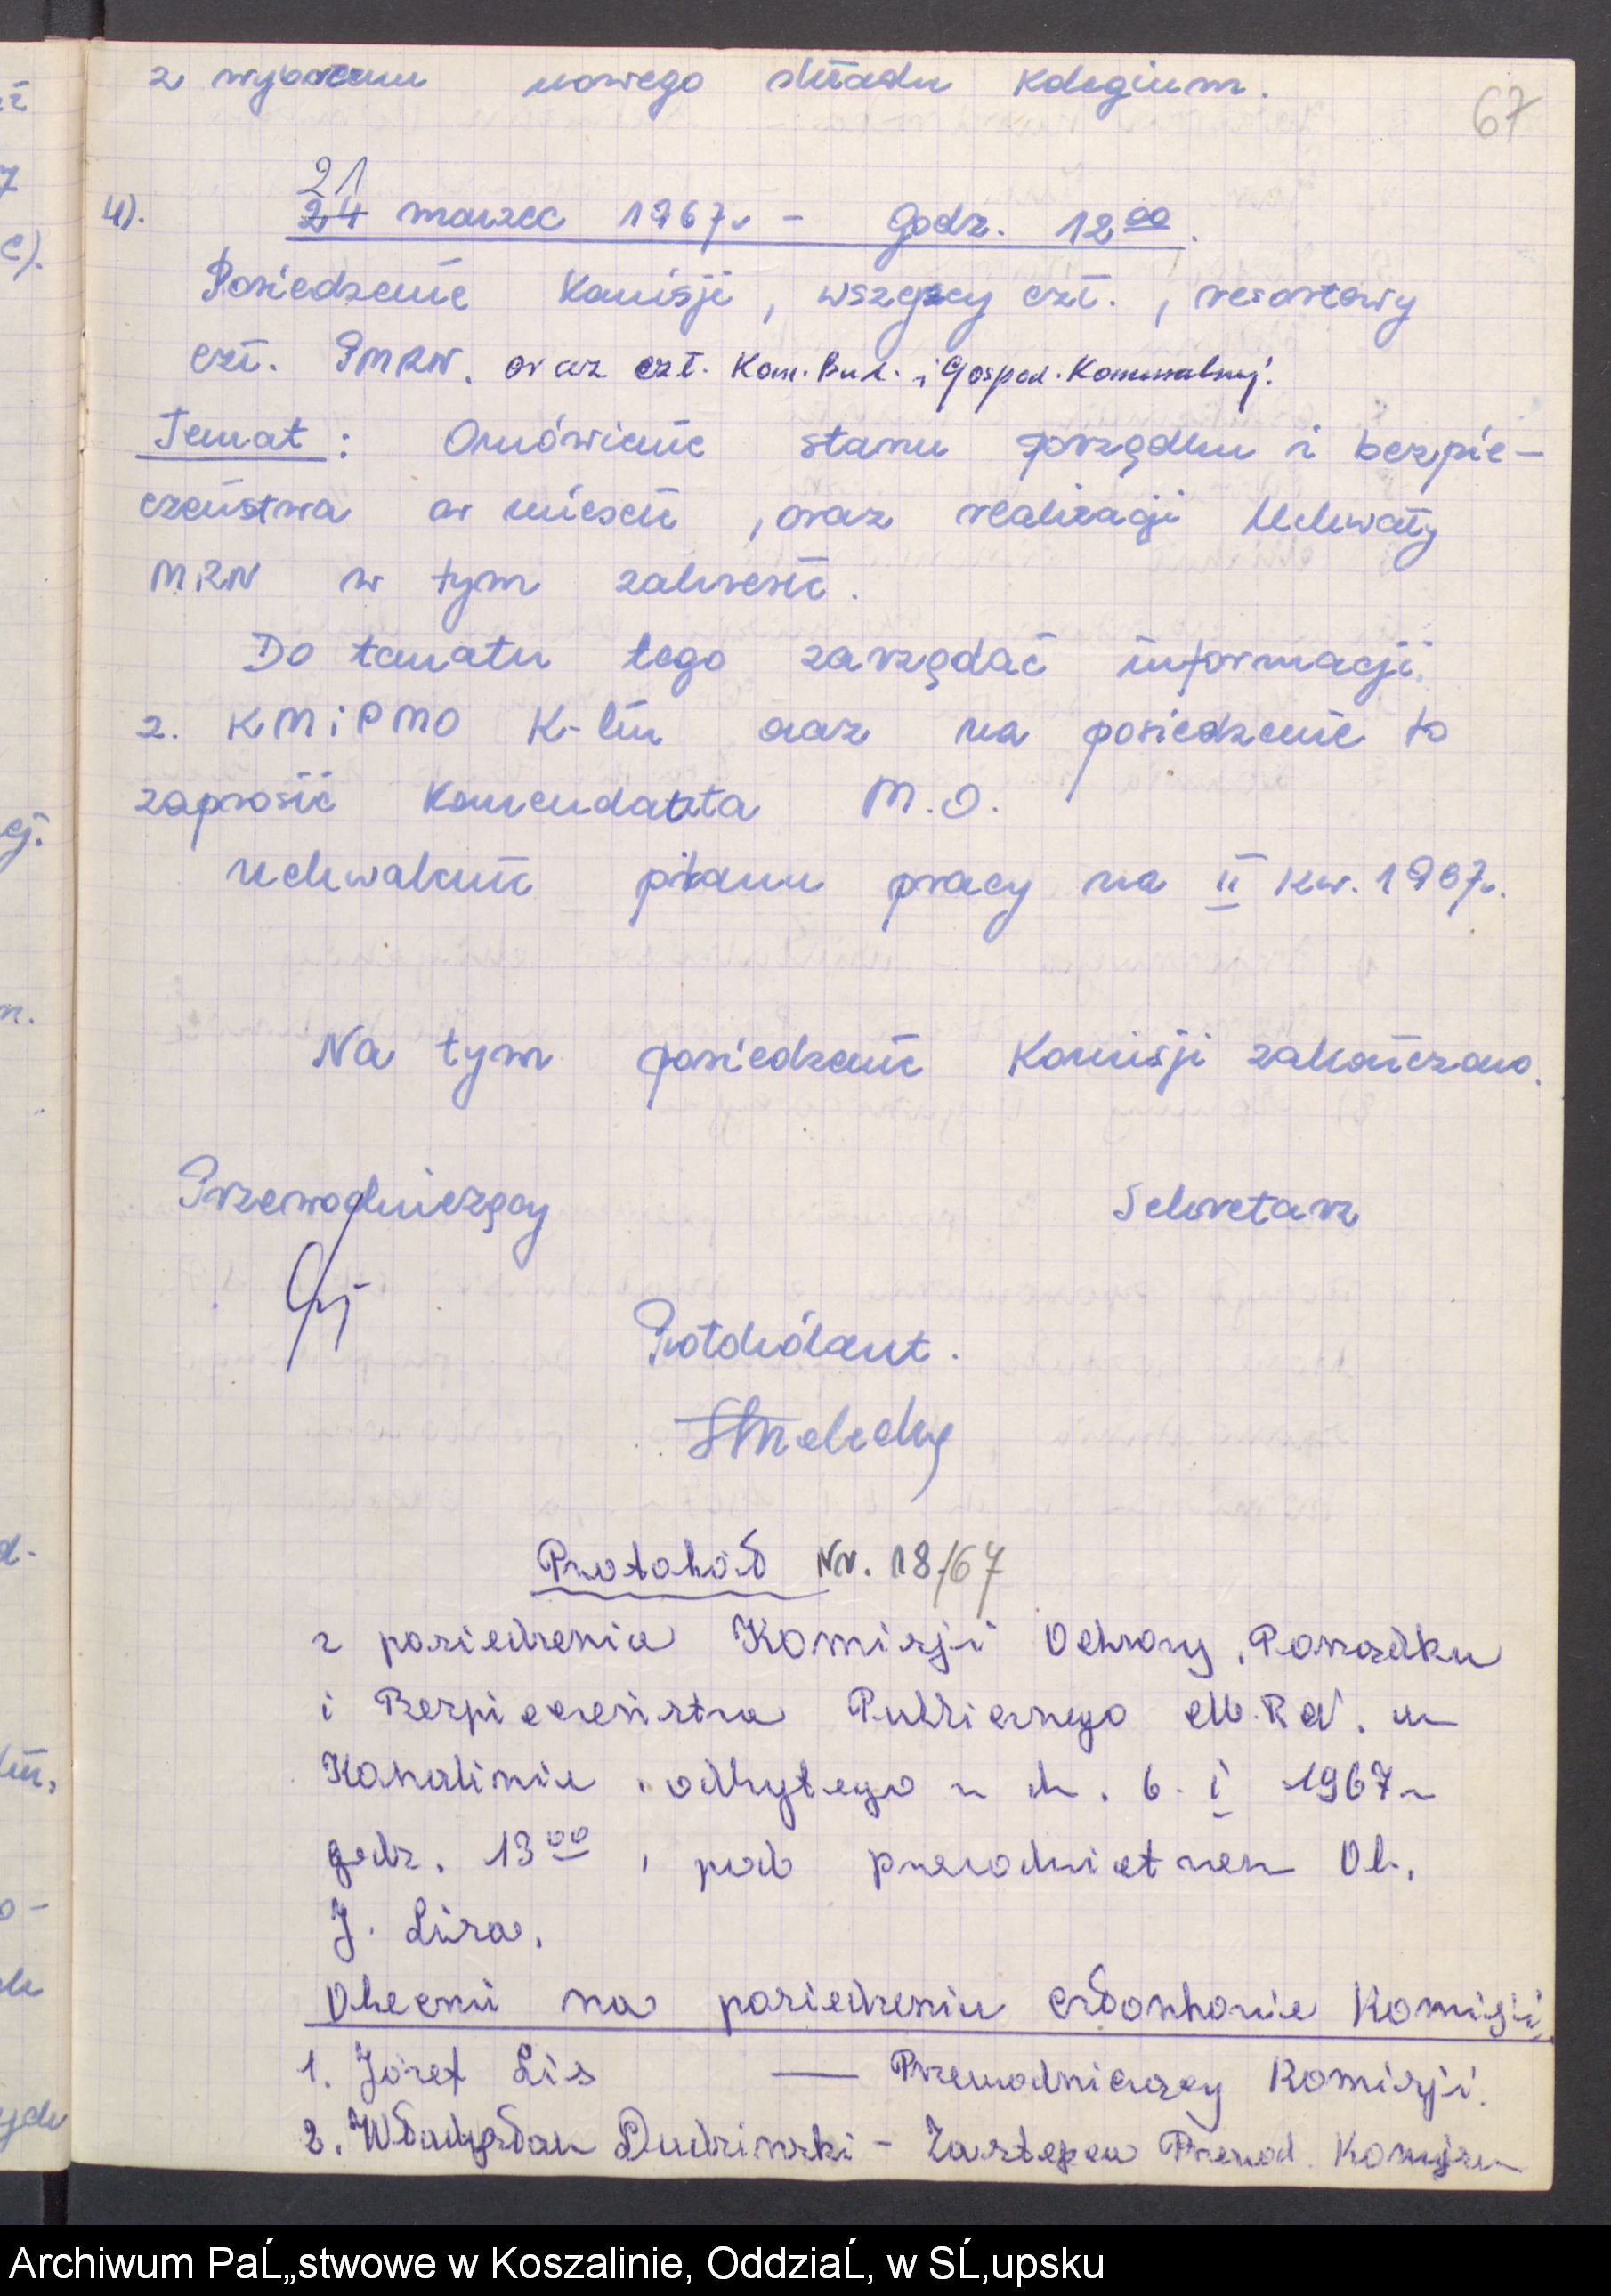 z wyborem nowego składu Kolegium.
67
21
4). 24 marzec 1967r - godz. 12⁰⁰.
Posiedzenie Komisji, wszyscy czł., resortowy
czł. PMRN. oraz czł. Kom. Bud. i Gospod. Komunalnej.
Temat: Omówienie stanu porządku i bezpie-
czeństwa w mieście, oraz realizacji Uchwały
MRN w tym zakresie.
Do tematu tego zarządać informacji
z. KMiPMO K-lin oraz na posiedzenie to
zaprosić Komendanta M.O.
Uchwalenie planu pracy na II kw. 1967r.
Na tym posiedzenie Komisji zakończono.
Przewodniczący Sekretarz
Protokólant.
Protokół Nr. 18/67
z posiedzenia Komisji Ochrony, Porządku
i Bezpieczeństwa Publicznego M.R.N. w
Koszalinie, odbytego w dn. 6. I 1967r
godz. 13⁰⁰, pod przewodnictwem Ob.
J. Lisa.
Obecni na posiedzeniu członkowie Komisji
1. Józef Lis — Przewodniczący Komisji.
2. Władysław Dudziński - Zastępca Przewod. Komisji
Archiwum PaĹ„stwowe w Koszalinie, OddziaĹ, w SĹ‚upsku